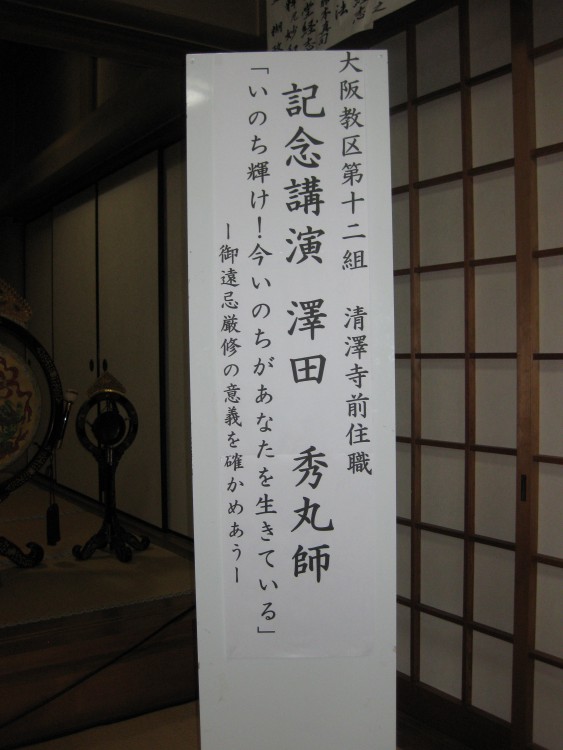 大阪教区第十二組　清澤寺前住職
記念講演　澤田　秀丸師
「いのち輝け！今いのちがあなたを生きている」
ー御遠忌厳修の意義を確かめあうー